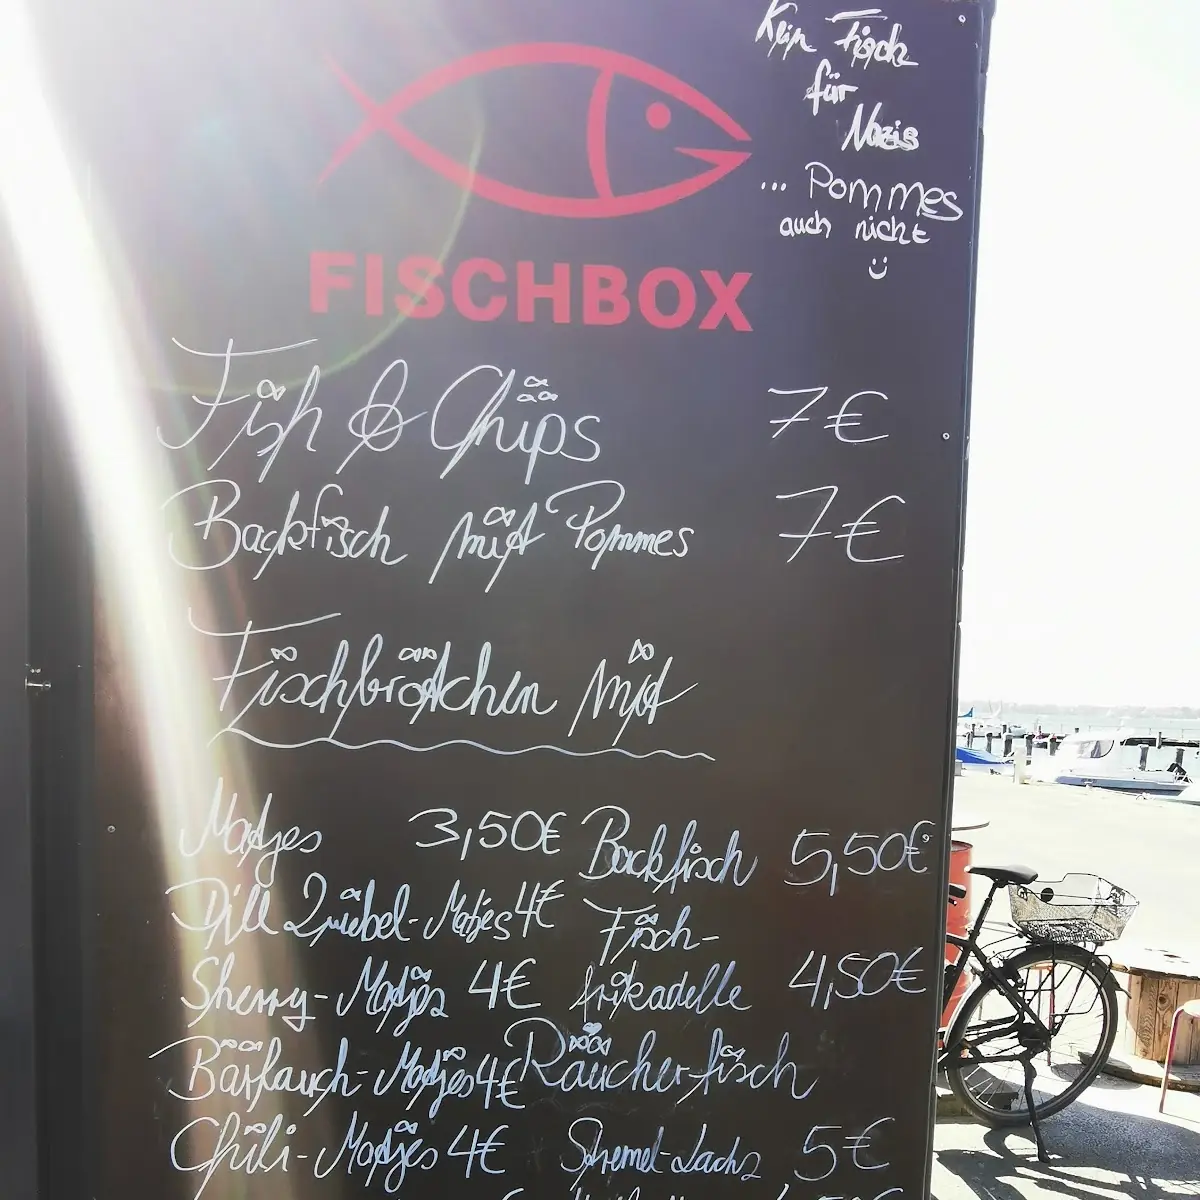 Kein Fisch
für
Nazis
... Pommes
auch nicht
FISCHBOX
Fish & Chips 7€
Backfisch mit Pommes 7€
Fischbrötchen mit
Matjes 3,50€
Dill Zwiebel-Matjes 4€
Sherry-Matjes 4€
Bärlauch-Matjes 4€
Chili-Matjes 4€
Backfisch 5,50€
Fisch-
frikadelle 4,50€
Räucherfisch
Stremel-Lachs 5€